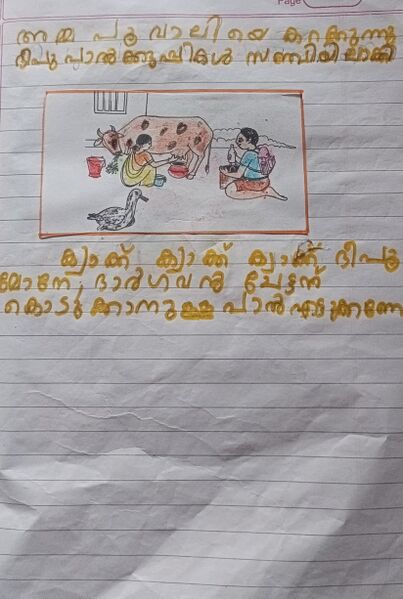 Page
അമ്മ പൂവാലിയെ കറക്കുന്നു
ദീപു പാൽക്കുപ്പികൾ സഞ്ചിയിലാക്കി
ക്വാക്ക് ക്വാക്ക് ക്വാക്ക് ദീപു
മോനേ, ഭാർഗവൻ ചേട്ടന്
കൊടുക്കാനുള്ള പാൽ എടുക്കണേ